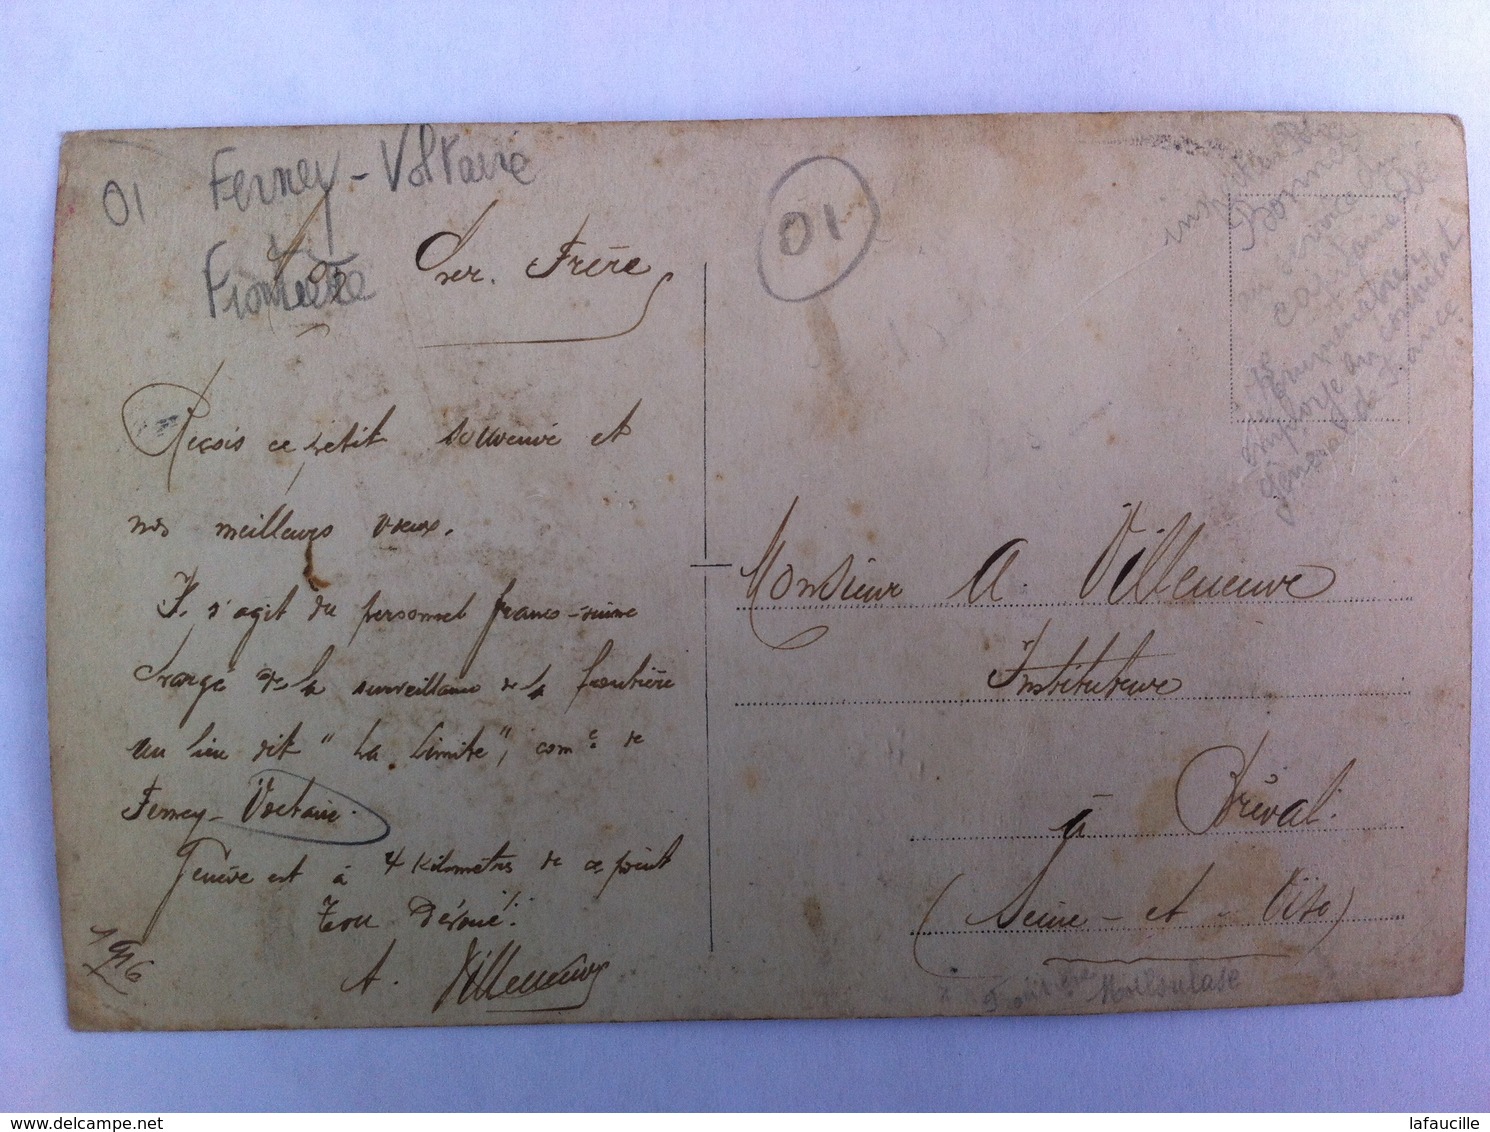 01
Ferney-Voltaire
Frontière
Cher Frère
Reçois ce petit souvenir et
nos meilleurs vœux.
Il s'agit du personnel franco-suisse
chargé de la surveillance de la frontière
au lieu dit "La Limite", com.e de
Ferney-Voltaire.
Genève est à 4 kilomètres de ce point
Ton Dévoué.
A. Villeneuve
1916
01
Monsieur A. Villeneuve
Instituteur
à Bréval.
(Seine-et-Oise)
Bonnet
au service du
capitaine
employé au consulat
général de France
lafaucille